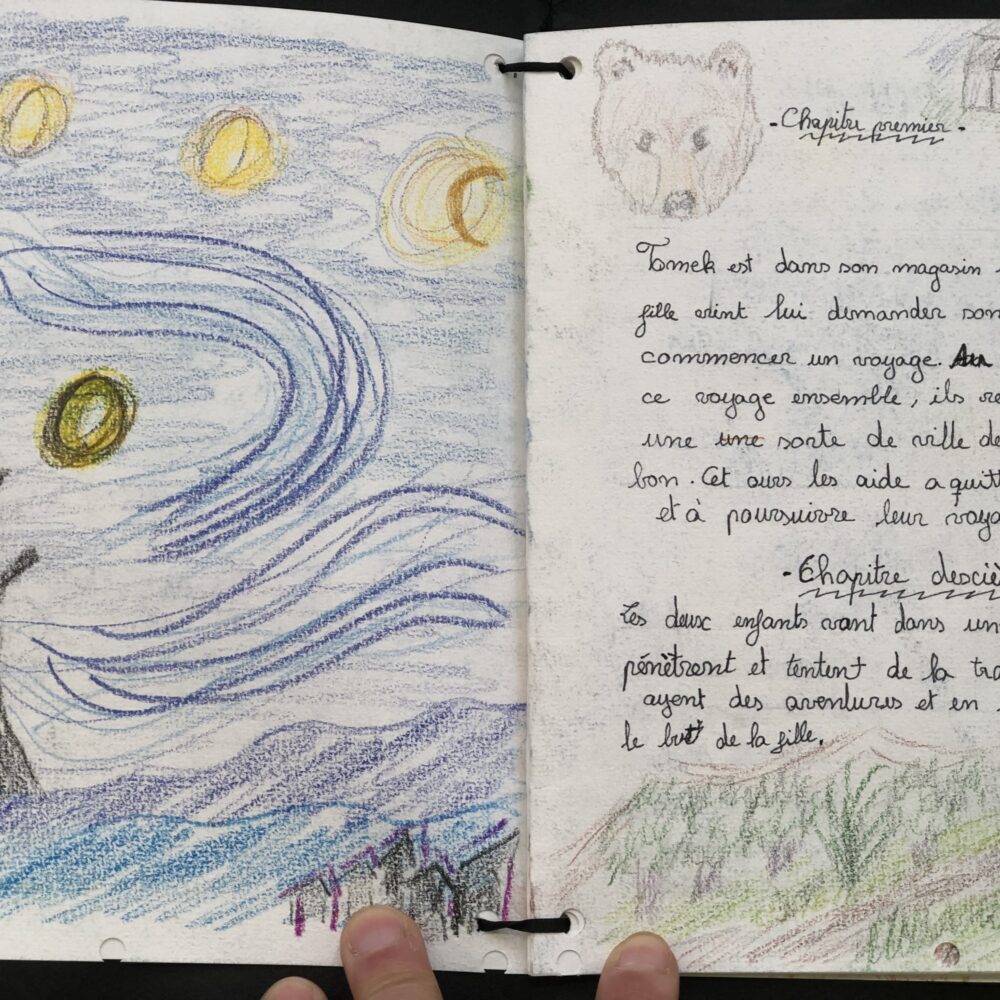 - Chapitre premier -
Tomek est dans son magasin
fille vint lui demander son
commencer un voyage.
ce voyage ensemble, ils re
une une sorte de ville de
bon. Cet ours les aide a quitt
et à poursuivre leur voya
- Chapitre desciè
Les deux enfants vont dans un
pénètrent et tentent de la tra
ayent des aventures et en
le but de la fille.